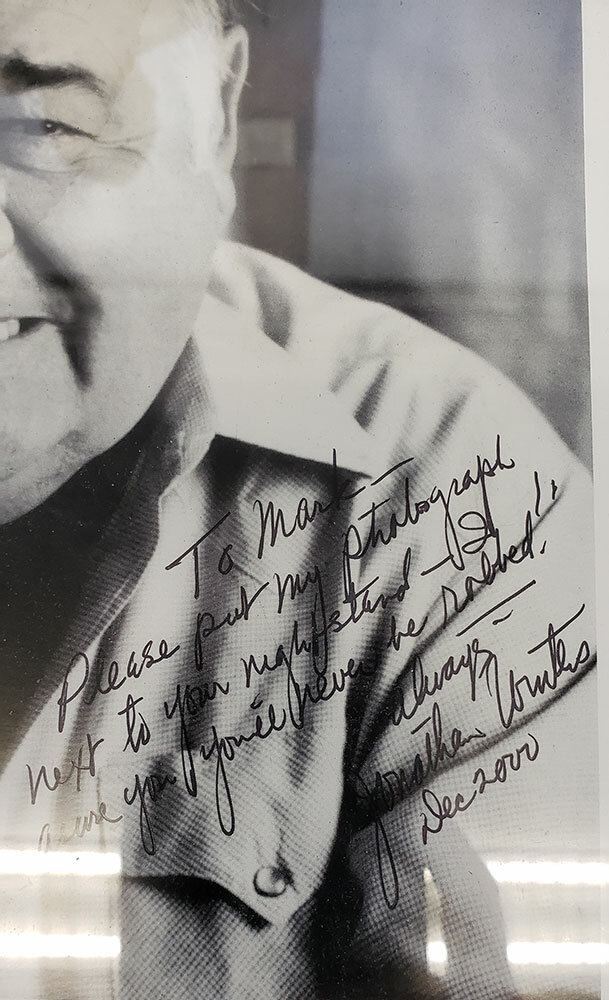 To Mark—
Please put my photograph
next to your nightstand — I
assure you you'll never be robbed!!
always—
Jonathan Winters
Dec 2000